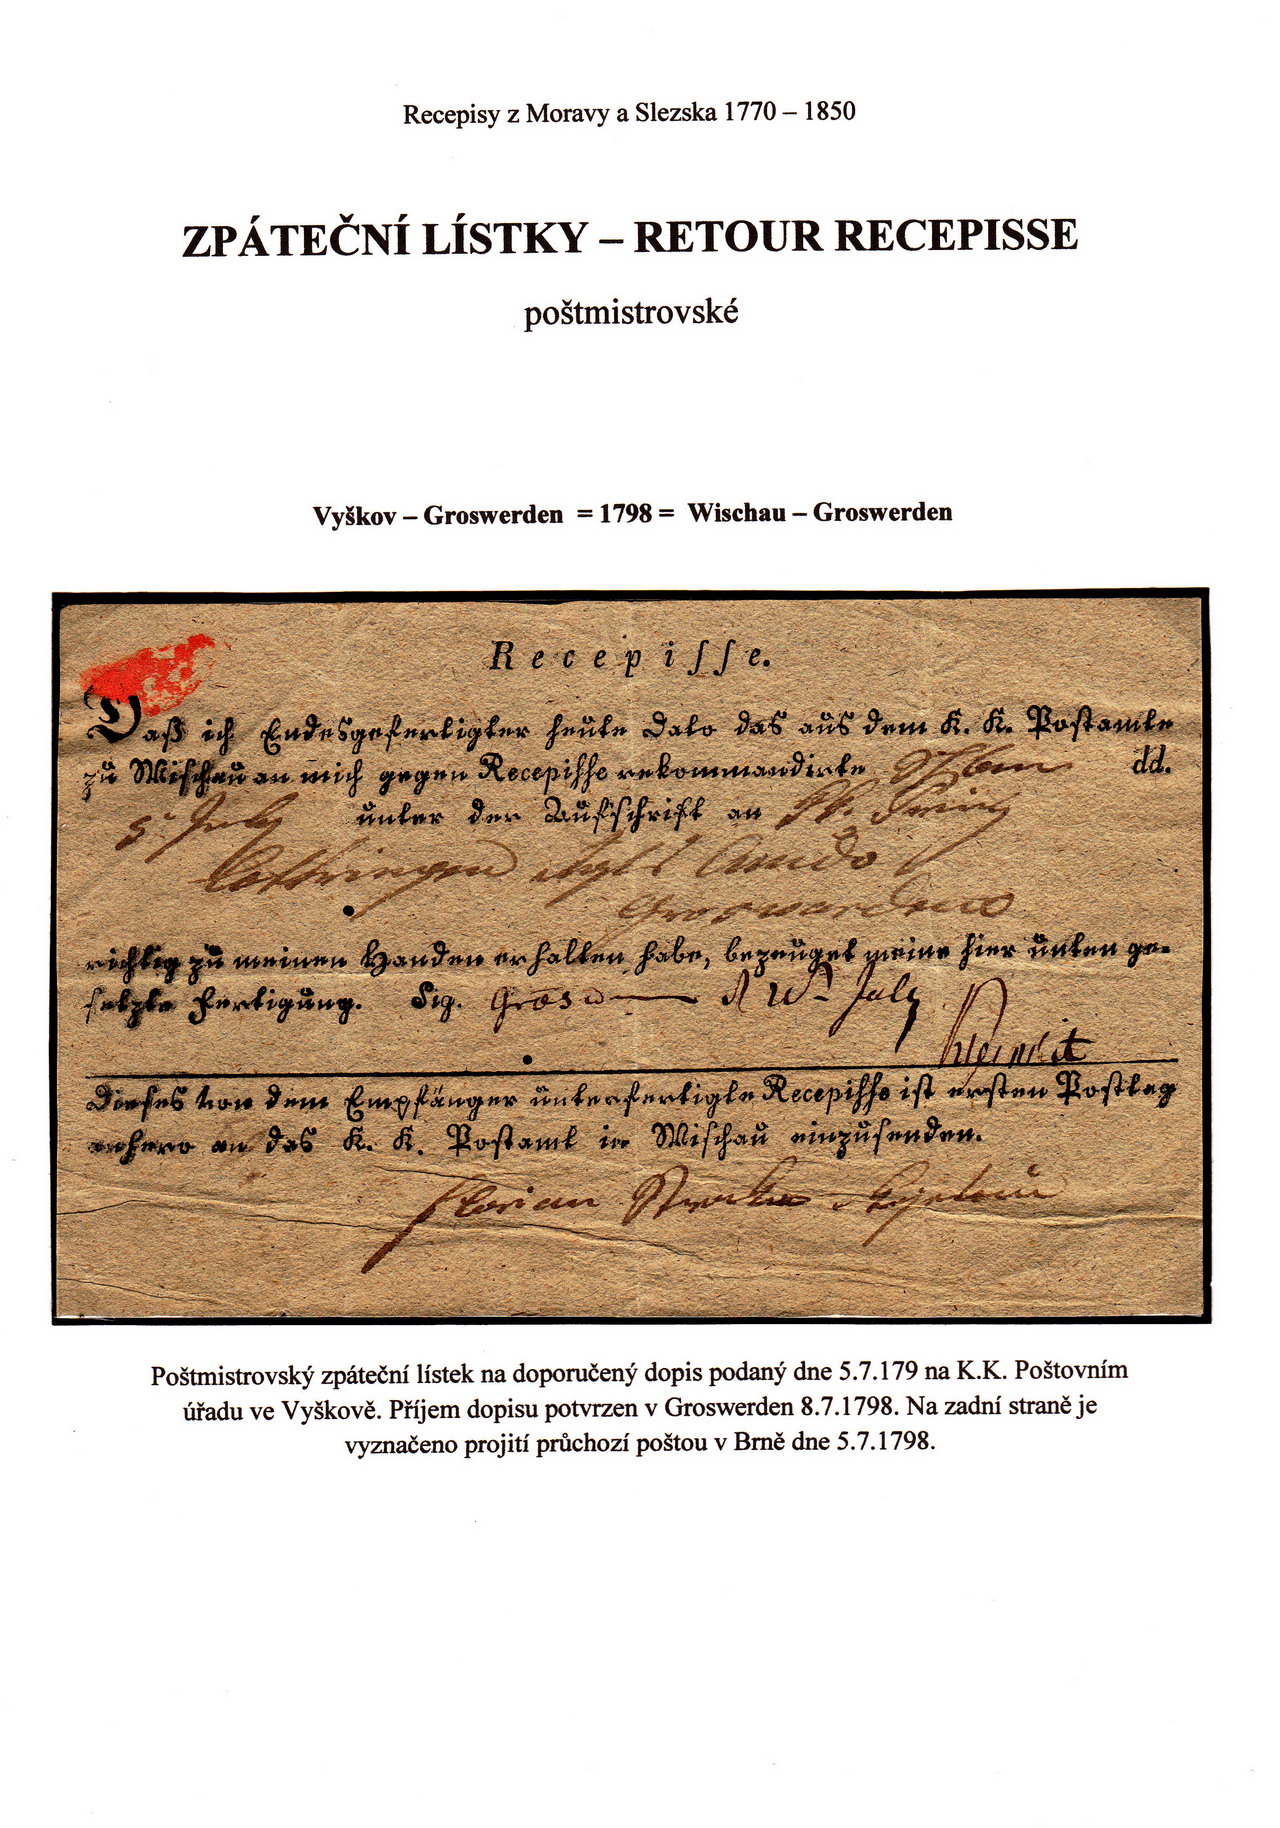 Recepisy z Moravy a Slezska 1770 – 1850
ZPÁTEČNÍ LÍSTKY – RETOUR RECEPISSE
poštmistrovské
Vyškov – Groswerden = 1798 = Wischau – Groswerden
Recepiſſe.
Daß ich Endesgefertigter heute dato das aus dem K. K. Postamte
zu Wischau an mich gegen Recepiſſe rekommandirte Schreiben dd.
5. July unter der Aufschrift an
Lothringen
Groswardein
richtig zu meinen Handen erhalten habe, bezeuget meine hier unten ge-
setzte Fertigung. Sig. July
Dieses von dem Empfänger unterfertigte Recepiſſe ist ersten Posttag
anhero an das K. K. Postamt in Wischau einzusenden.
Florian
Poštmistrovský zpáteční lístek na doporučený dopis podaný dne 5.7.179 na K.K. Poštovním
úřadu ve Vyškově. Příjem dopisu potvrzen v Groswerden 8.7.1798. Na zadní straně je
vyznačeno projití průchozí poštou v Brně dne 5.7.1798.